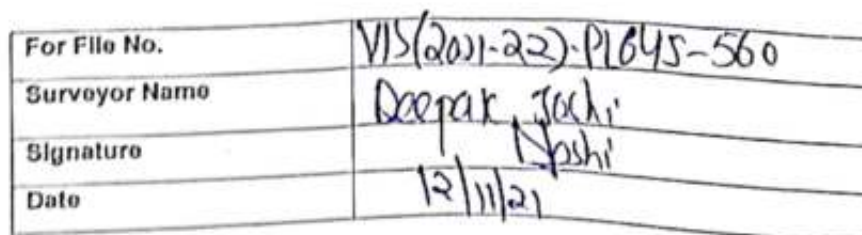 For File No. VIS(2021-22)-PL645-560
Surveyor Name Deepak Joshi
Signature Njoshi
Date 12/11/21